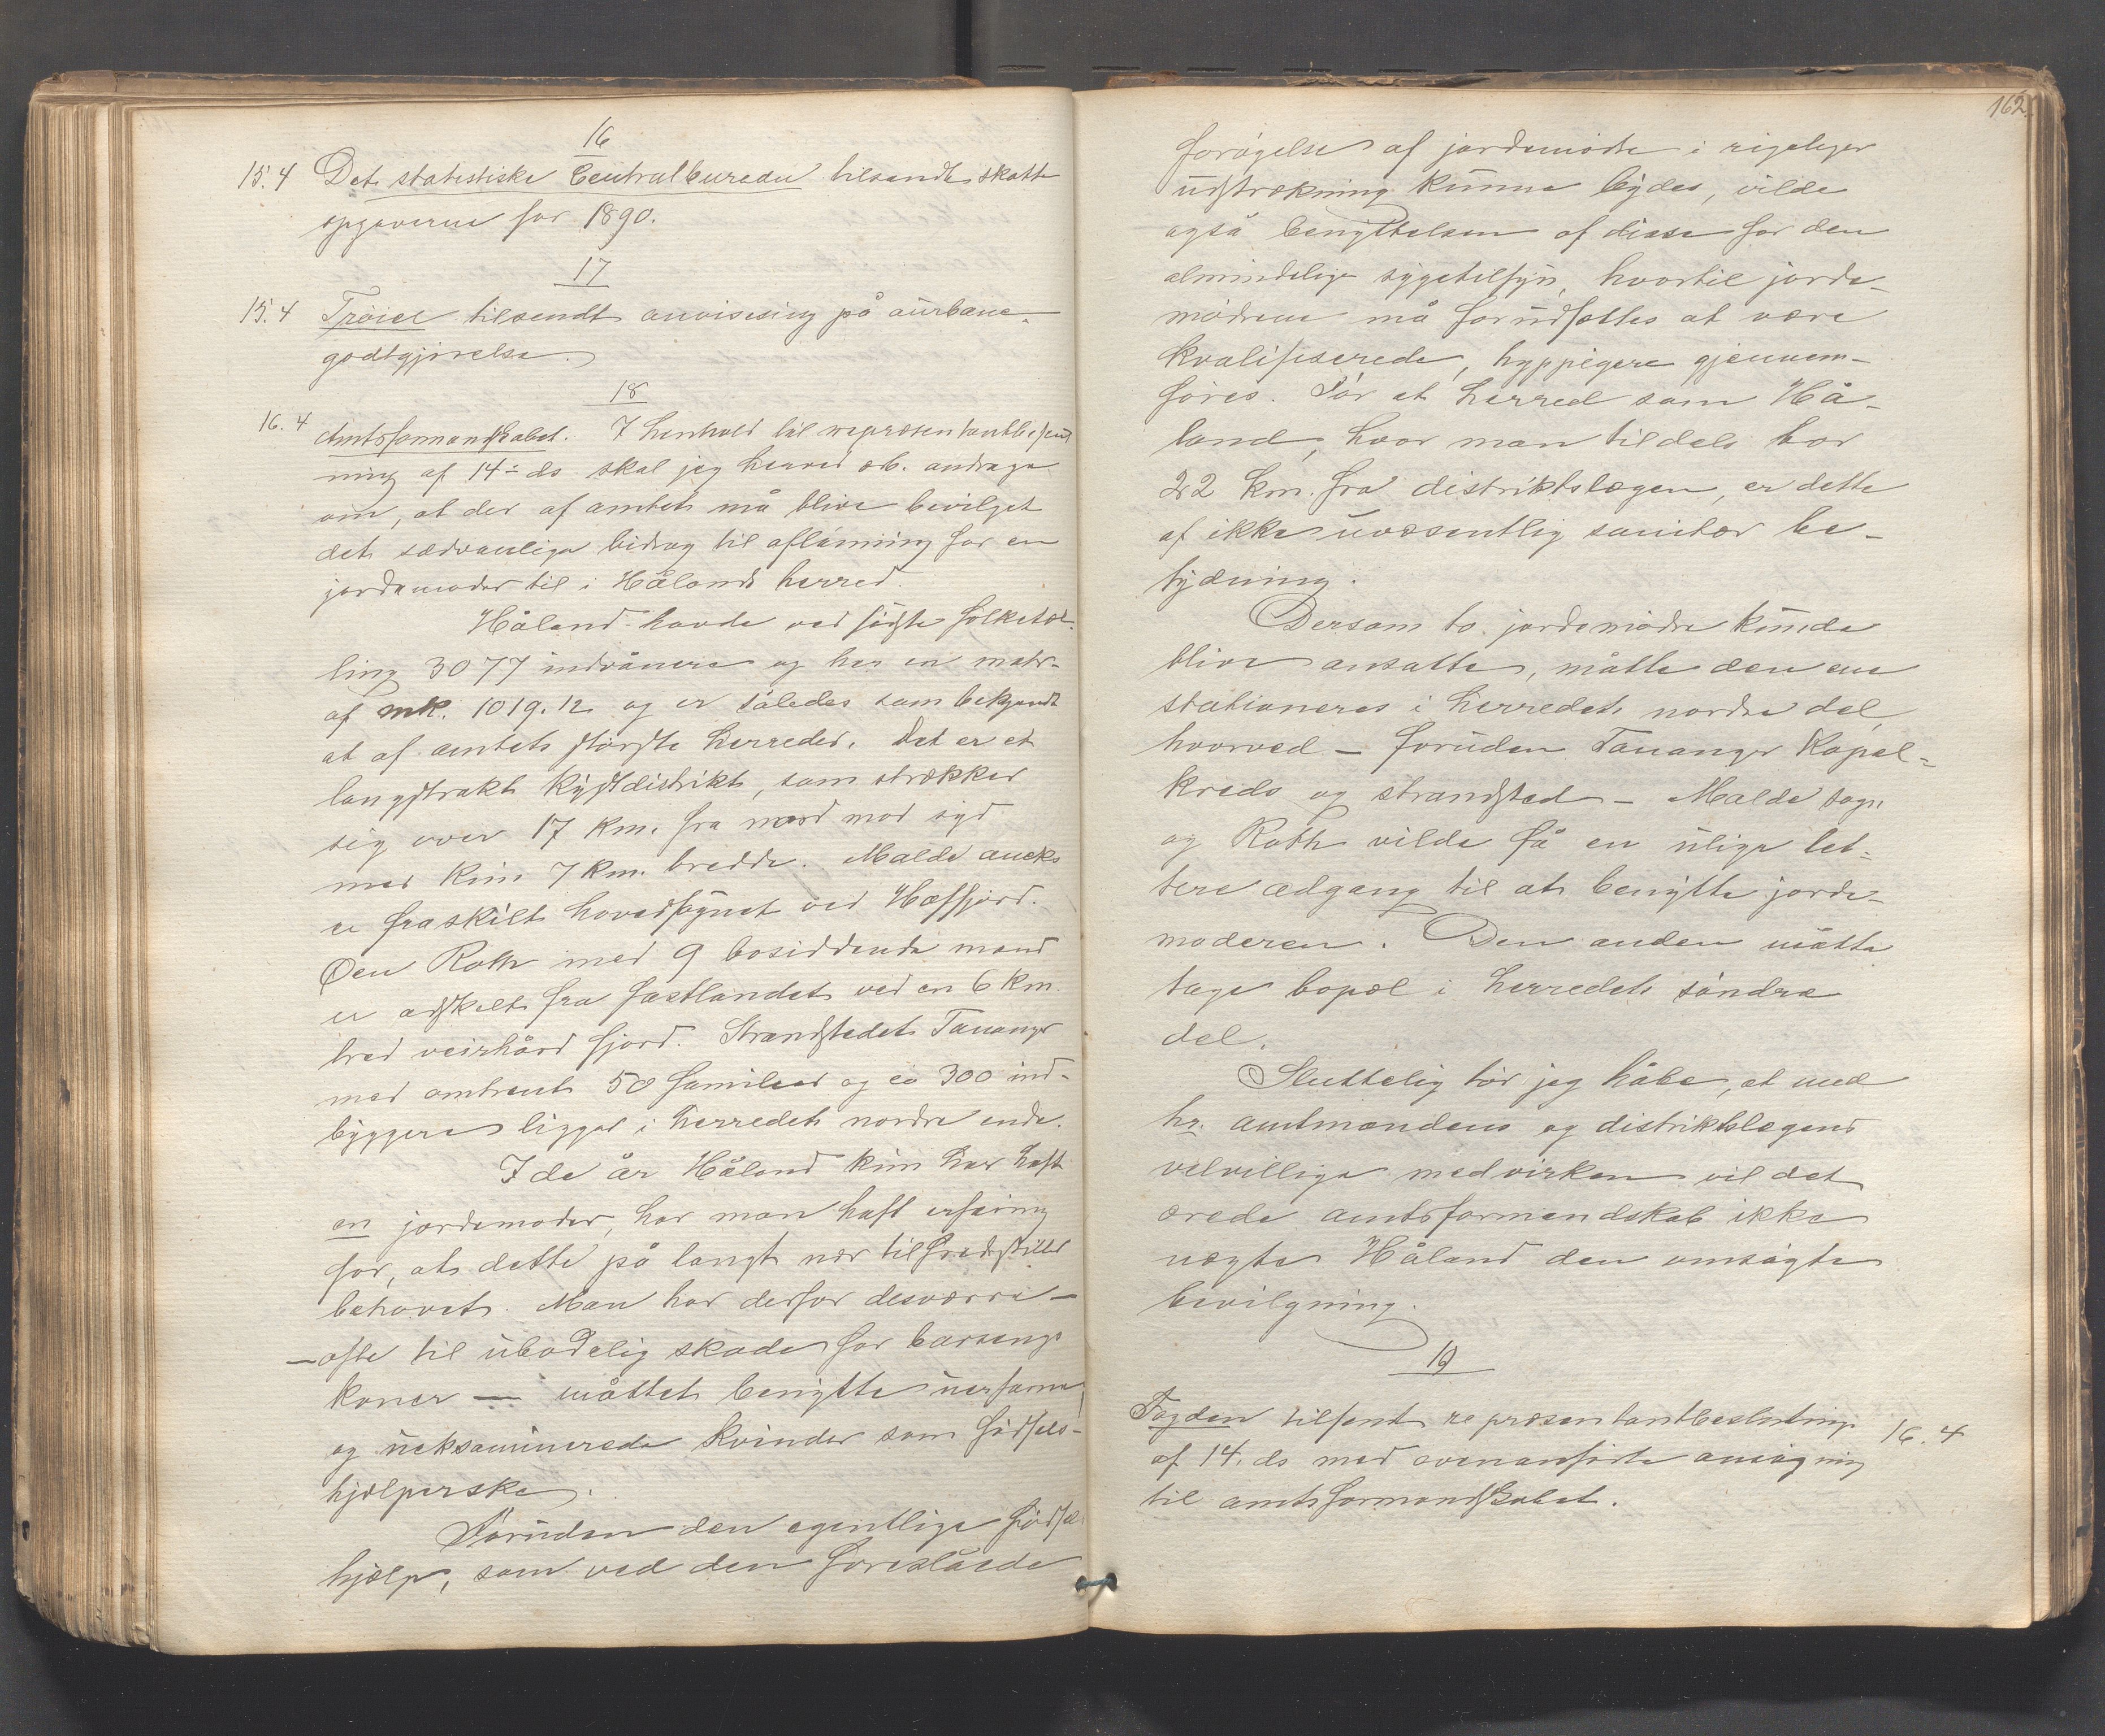 16
15.4 Det statistiske Centralbureau tilsendt skatte
opgaverne for 1890.
17
15.4 tilsendt anvisning på
godtgjørelse.
18
16.4 Amtsformandskabet. I henhold til
ning af 14de ds skal jeg herved ærb. andrage
om, at der af amtet må blive bevilget
det sædvanlige bidrag til aflønning for en
jordemoder til i Hålands herred.
Håland havde ved sidste folketæl-
ling 3077 indvånere og har en matr.
af mk. 1019.12 og er således som bekjendt
et af amtets største herreder. Det er et
langstrakt kystdistrikt, som strækker
sig over 17 km. fra nord mod syd
med kun 7 km. bredde. Malde aneks
er fraskilt hovedsognet ved Hafsfjord.
Øen Roth med 9 bosiddende mænd
er adskilt fra fastlandet ved en 6 km.
bred veirhård fjord. Strandstedet Tananger
med omtrent 50 familier og ca 300 ind-
byggere ligger i herredets nordre ende.
I de år Håland kun har haft
en jordemoder, har man haft erfaring
for, at dette på langt nær tilfredsstiller
behovet. Man har derfor desværre –
– ofte til ubodelig skade for barsengs
koner – måttet benytte uerfarne
og ueksaminerede kvinder som fødsels-
hjælperske.
Foruden den egentlige fødsels
hjælp, som ved den foreslåede
162.
forøgelse af jordemødre i rigeliger
udstrækning kunne bydes, vilde
også benyttelsen af disse for den
almindelige sygetilsyn, hvortil jorde-
mødrene må forudsættes at være
kvalifiserede, hyppigere gjennem-
føres. For et herred som Hå-
land, hvor man tildels bor
22 km. fra distriktslægen, er dette
af ikke uvæsentlig sanitær be-
tydning.
Dersom to jordemødre kunde
blive ansatte, måtte den ene
stationeres i herredets nordre del
hvorved – foruden Tananger Kapel-
kreds og strandsted – Malde sogn
og Roth vilde få en ulige let-
tere adgang til at benytte jorde-
moderen. Den anden måtte
tage bopæl i herredets søndre
del.
Sluttelig tør jeg håbe, at med
hr. amtmandens og distriktslægens
velvillige medvirken vil det
ærede amtsformandskab ikke
nægte Håland den omsøgte
bevilgning.
19
Fogden tilsent repræsentantbeslutning 16.4
af 14. ds med ovenanførte ansøgning
til amtsformandskabet.